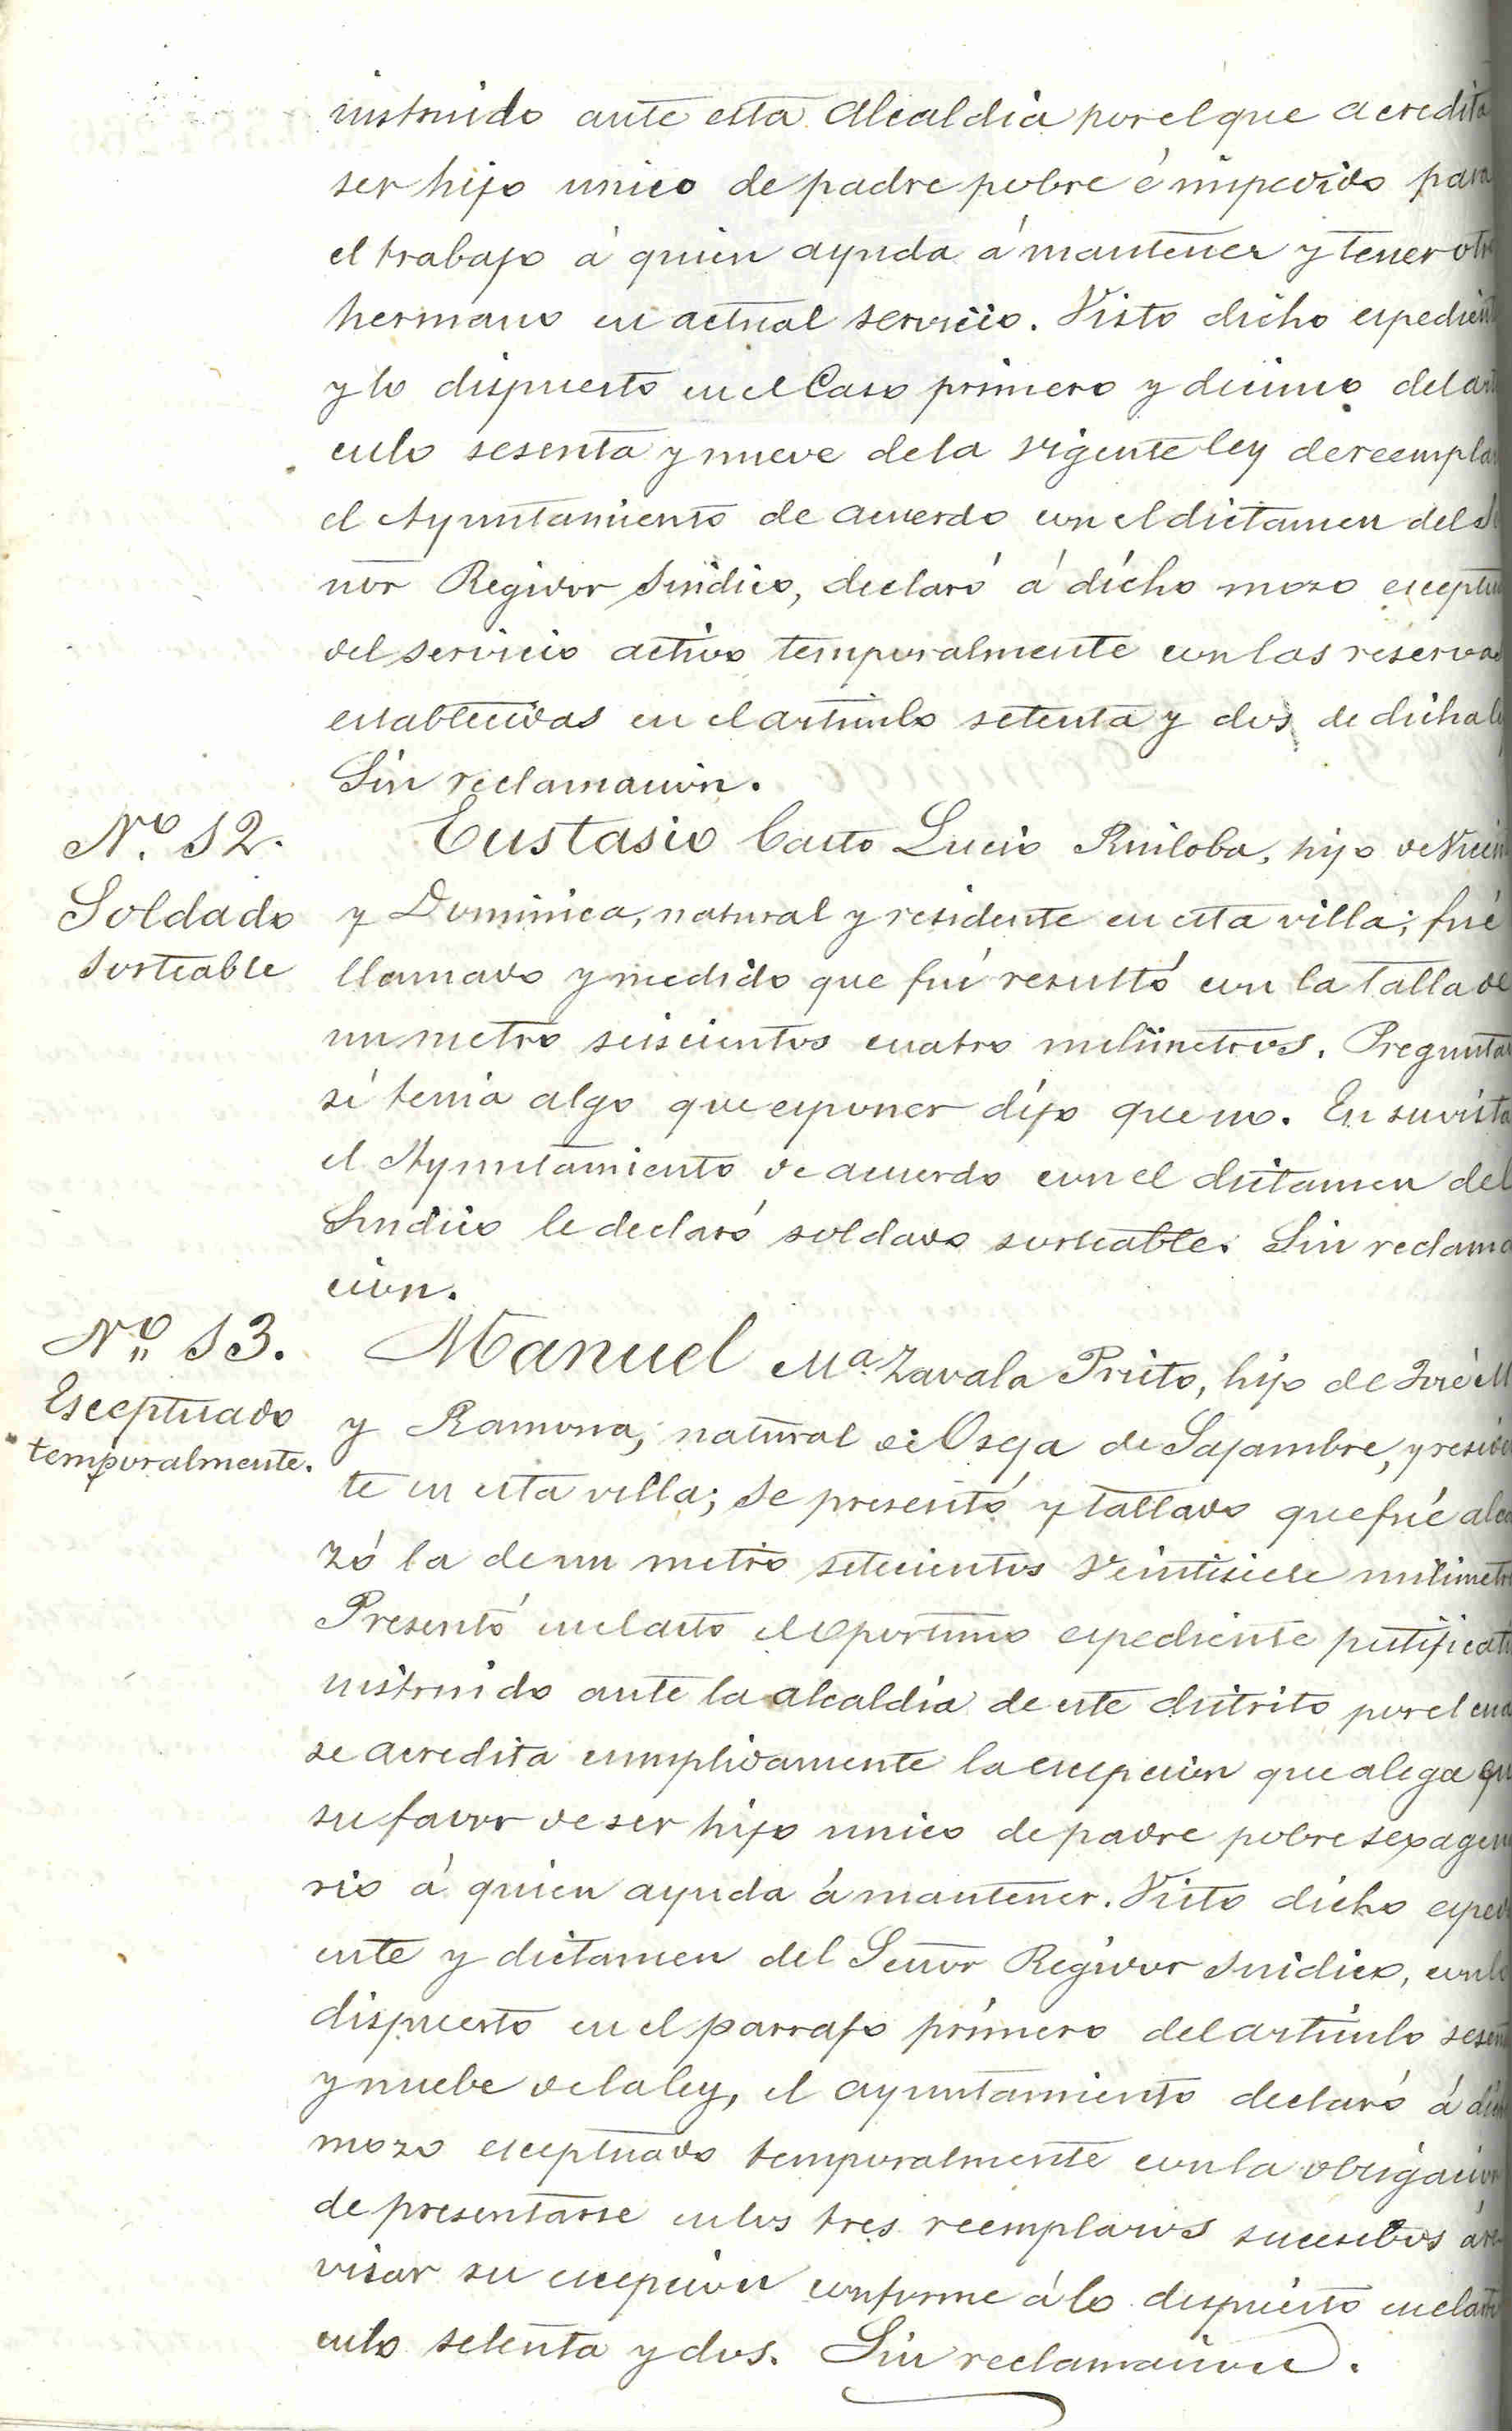 instruido ante esta Alcaldia por el que acredita
ser hijo unico de padre pobre é impedido para
el trabajo á quien ayuda á mantener y tener otro
hermano en actual servicio. Visto dicho espediente
y lo dispuesto en el Caso primero y decimo del arti
culo sesenta y nueve de la vigente ley de reemplazos
el Ayuntamiento de acuerdo con el dictamen del Se
ñor Regidor Sindico, declaró á dicho mozo esceptuado
del servicio activo temporalmente con las reservas
establecidas en el articulo setenta y dos de dicha ley
Sin reclamacion.
Nº 12.
Soldado
sorteable
Eustasio Casto Lucio Ruiloba, hijo de
y Dominica, natural y residente en esta villa; fué
llamado y medido que fué resultó con la talla de
un metro seiscientos cuatro milimetros. Preguntado
si tenia algo que esponer dijo que no. En su vista
el Ayuntamiento de acuerdo con el dictamen del
Sindico le declaró soldado sorteable. Sin reclama
cion.
Nº 13.
Esceptuado
temporalmente.
Manuel Mª Zavala Prieto, hijo de José M
y Ramona, natural de Oseja de Sajambre, y residen
te en esta villa; se presentó y tallado que fué alcan
zó la de un metro setecientos veintisiete milimetros
Presentó en el acto el oportuno espediente justificativo
instruido ante la alcaldia de este distrito por el cual
se acredita cumplidamente la escepcion que alega en
su favor de ser hijo unico de padre pobre sexagena
rio á quien ayuda á mantener. Visto dicho espedi
ente y dictamen del Señor Regidor Sindico, con lo
dispuesto en el parrafo primero del articulo sesenta
y nuebe de la ley, el ayuntamiento declaró á dicho
mozo esceptuado temporalmente con la obligacion
de presentarse en los tres reemplazos sucesibos á re
visar su escepcion conforme á lo dispuesto en el arti
culo setenta y dos. Sin reclamacion.